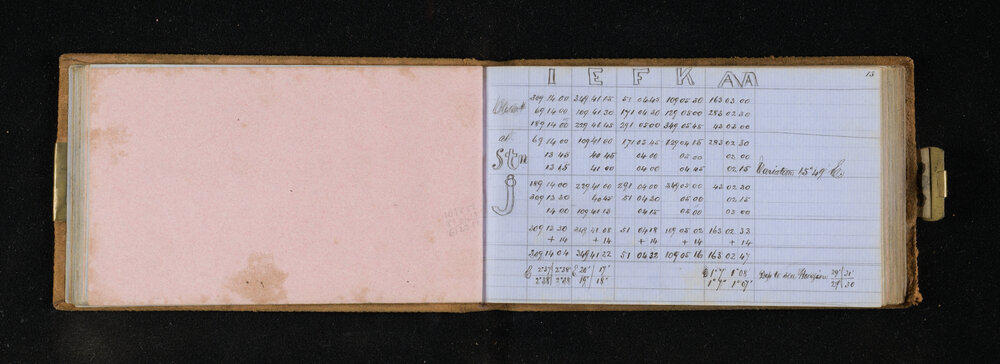 I E F K AA 13
309 14 00 349 41 15 51 04 45 109 05 30 163 03 00
69 14 00 109 41 30 171 04 30 129 05 00 283 02 30
189 14 00 229 41 45 291 05 00 349 05 45 43 03 00
at 69 14 00 109 41 00 171 03 45 129 04 15 283 02 30
Stn 13 45 40 45 04 00 05 00 03 00
13 15 41 00 04 00 04 45 02 15 Variation 15° 49' E
j 189 14 00 229 41 00 291 04 00 349 05 00 43 02 30
309 13 30 40 45 51 04 30 05 00 02 15
14 00 109 41 15 04 15 05 00 03 00
309 13 50 349 41 08 51 04 18 109 05 02 163 02 33
+ 14 + 14 + 14 + 14 + 14
309 14 04 349 41 22 51 04 32 109 05 16 163 02 47
E 2°37 2°38 E 20' 17' 1° 7 1° 08 Dep to sea Horizon 29' 31'
2°38 2°38 19' 18' 1° 7' 1° 07' 29 30